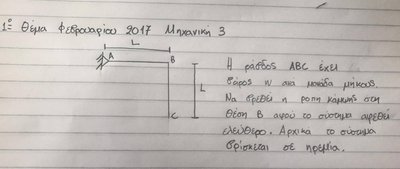 1ο Θέμα Φεβρουαρίου 2017 Μηχανική 3
L
A
B
L
C
Η ράβδος ABC έχει
βάρος w ανά μονάδα μήκους.
Να βρεθεί η ροπή κάμψης στη
θέση B αφού το σύστημα αφεθεί
ελεύθερο. Αρχικά το σύστημα
βρίσκεται σε ηρεμία.